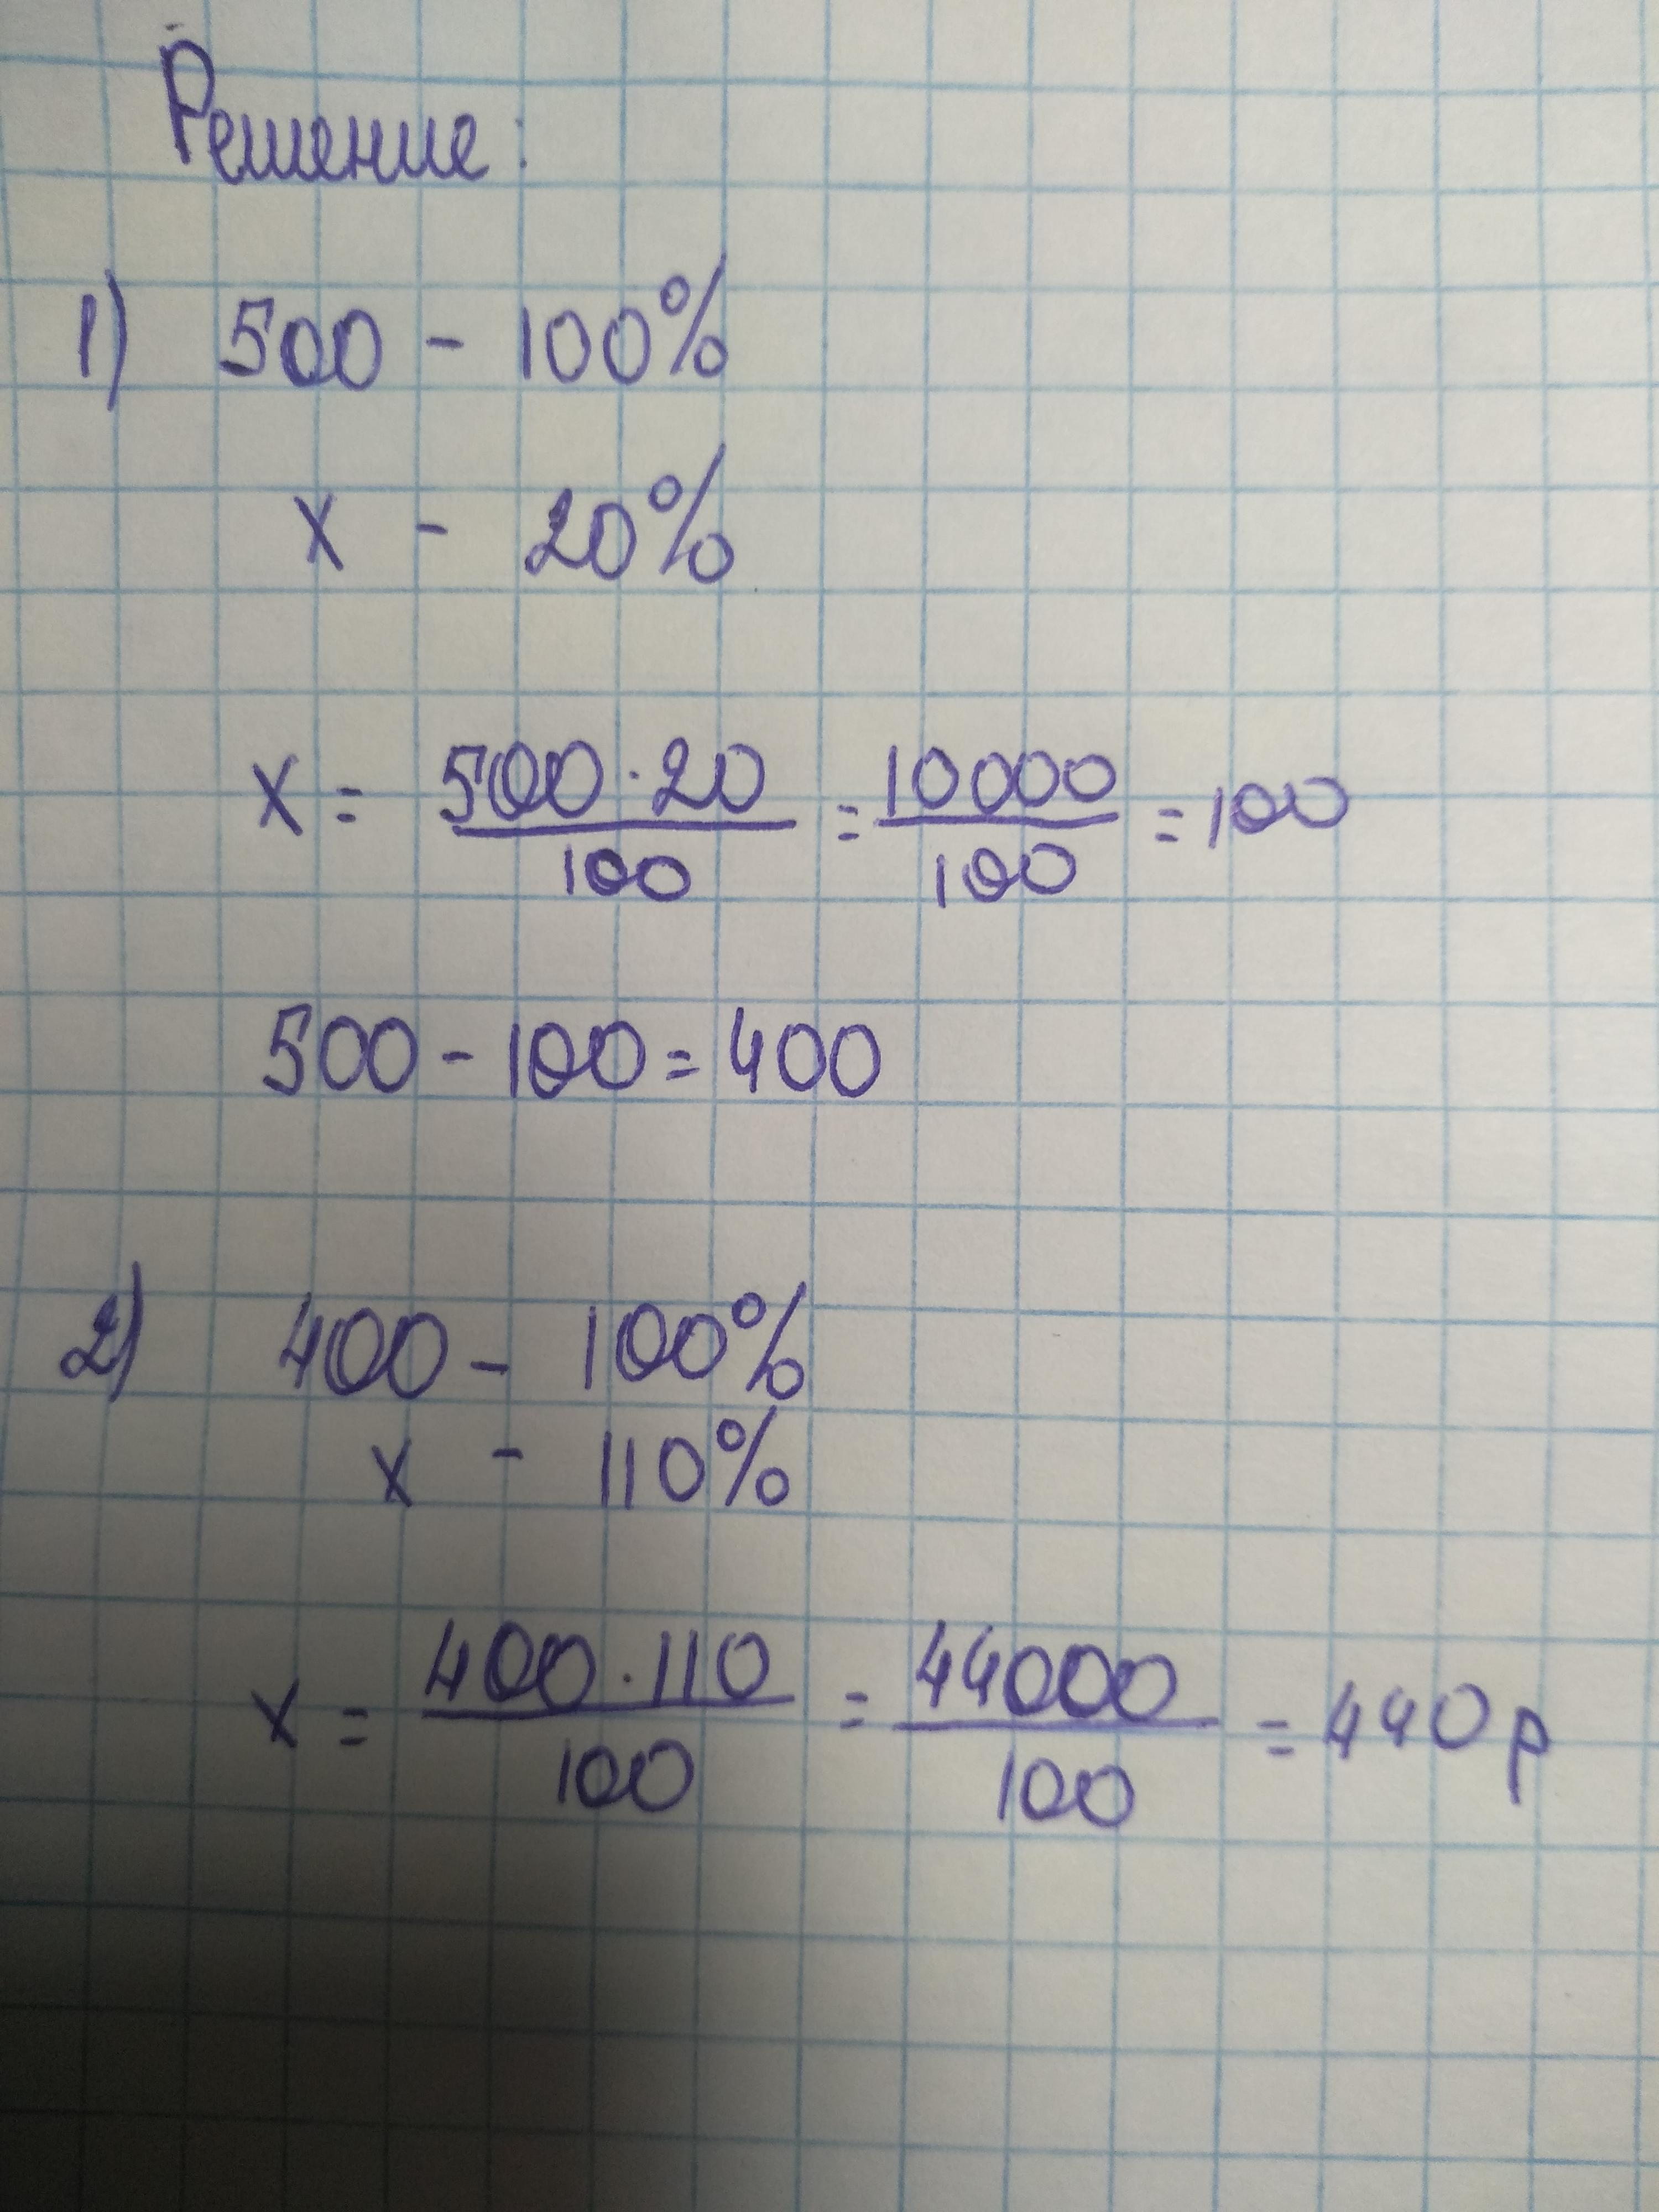 Решение:
1) 500 - 100%
x - 20%
x = 500·20/100 = 10000/100 = 100
500 - 100 = 400
2) 400 - 100%
x - 110%
x = 400·110/100 = 44000/100 = 440 р